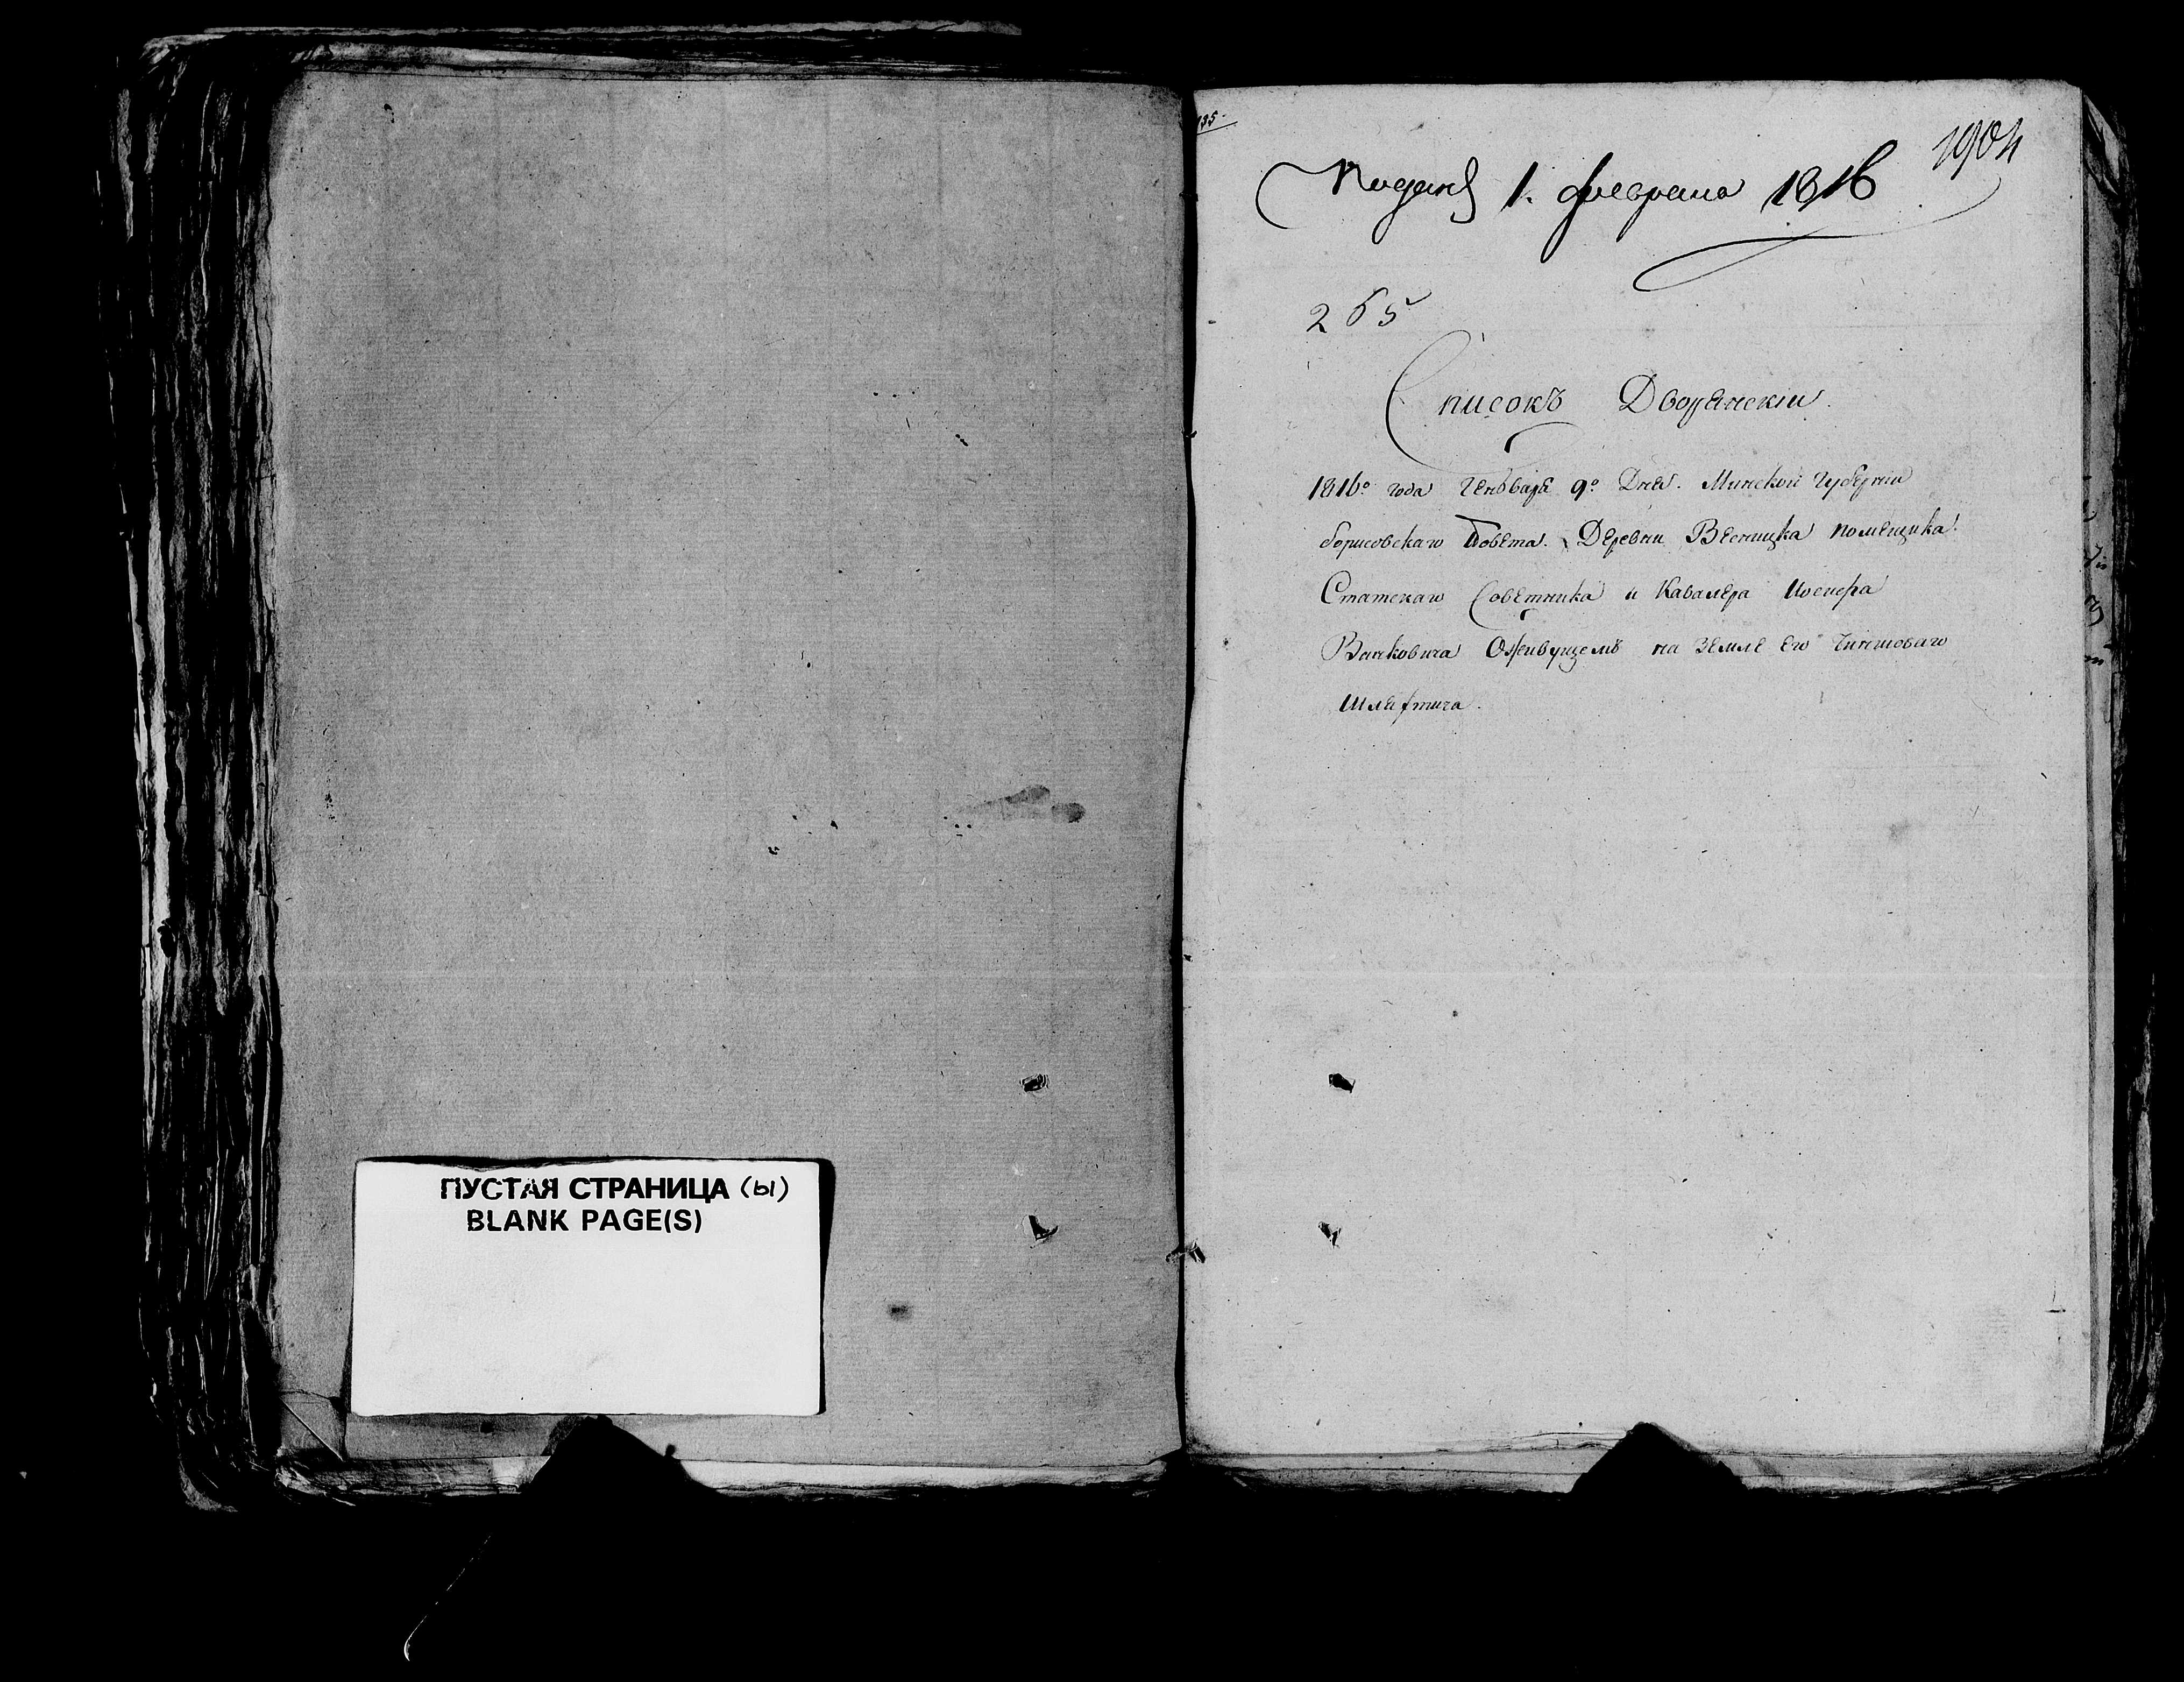 ПУСТАЯ СТРАНИЦА (ы)
BLANK PAGE(S)
135
1904
Поданъ 1. февраля 1816
265
Списокъ Дворянскiи.
1816º года Генваря 9º Дня. Минской Губернiи
борисовскаго Повета. Деревни Весницка помещика
Статскаго Советника и Кавалера Иосифа
Ванковича Оживущемъ на земле его Чиншоваго
шляхтича.